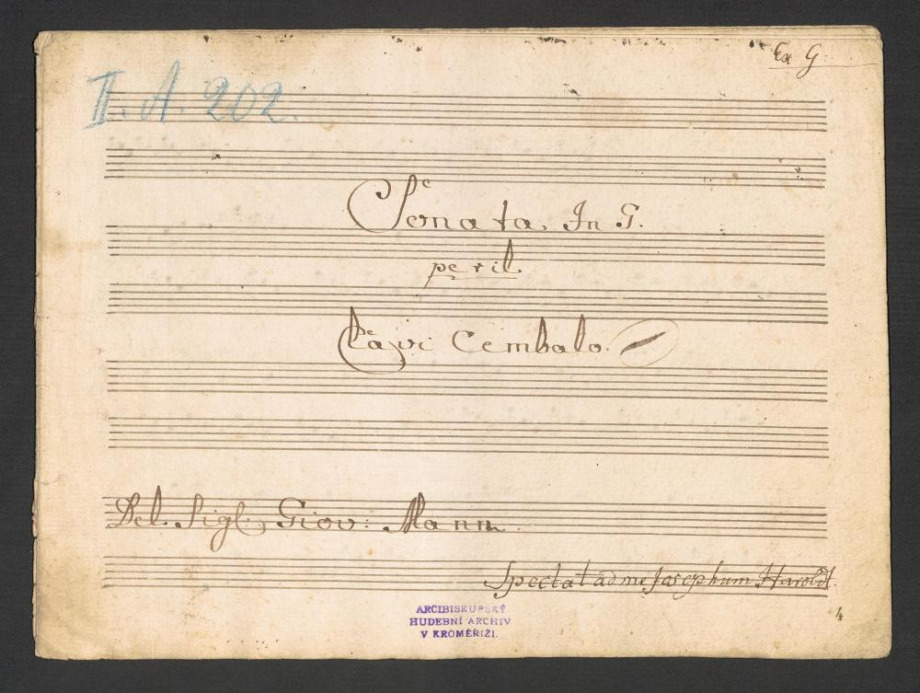 Ex G
II. A. 202.
Sonata In G.
per il
Clavi Cembalo.
Del. Sigl. Giov: Mann
Spectat ad me Josephum Haroldt.
4
ARCIBISKUPSKÝ
HUDEBNÍ ARCHIV
V KROMĚŘÍŽI.